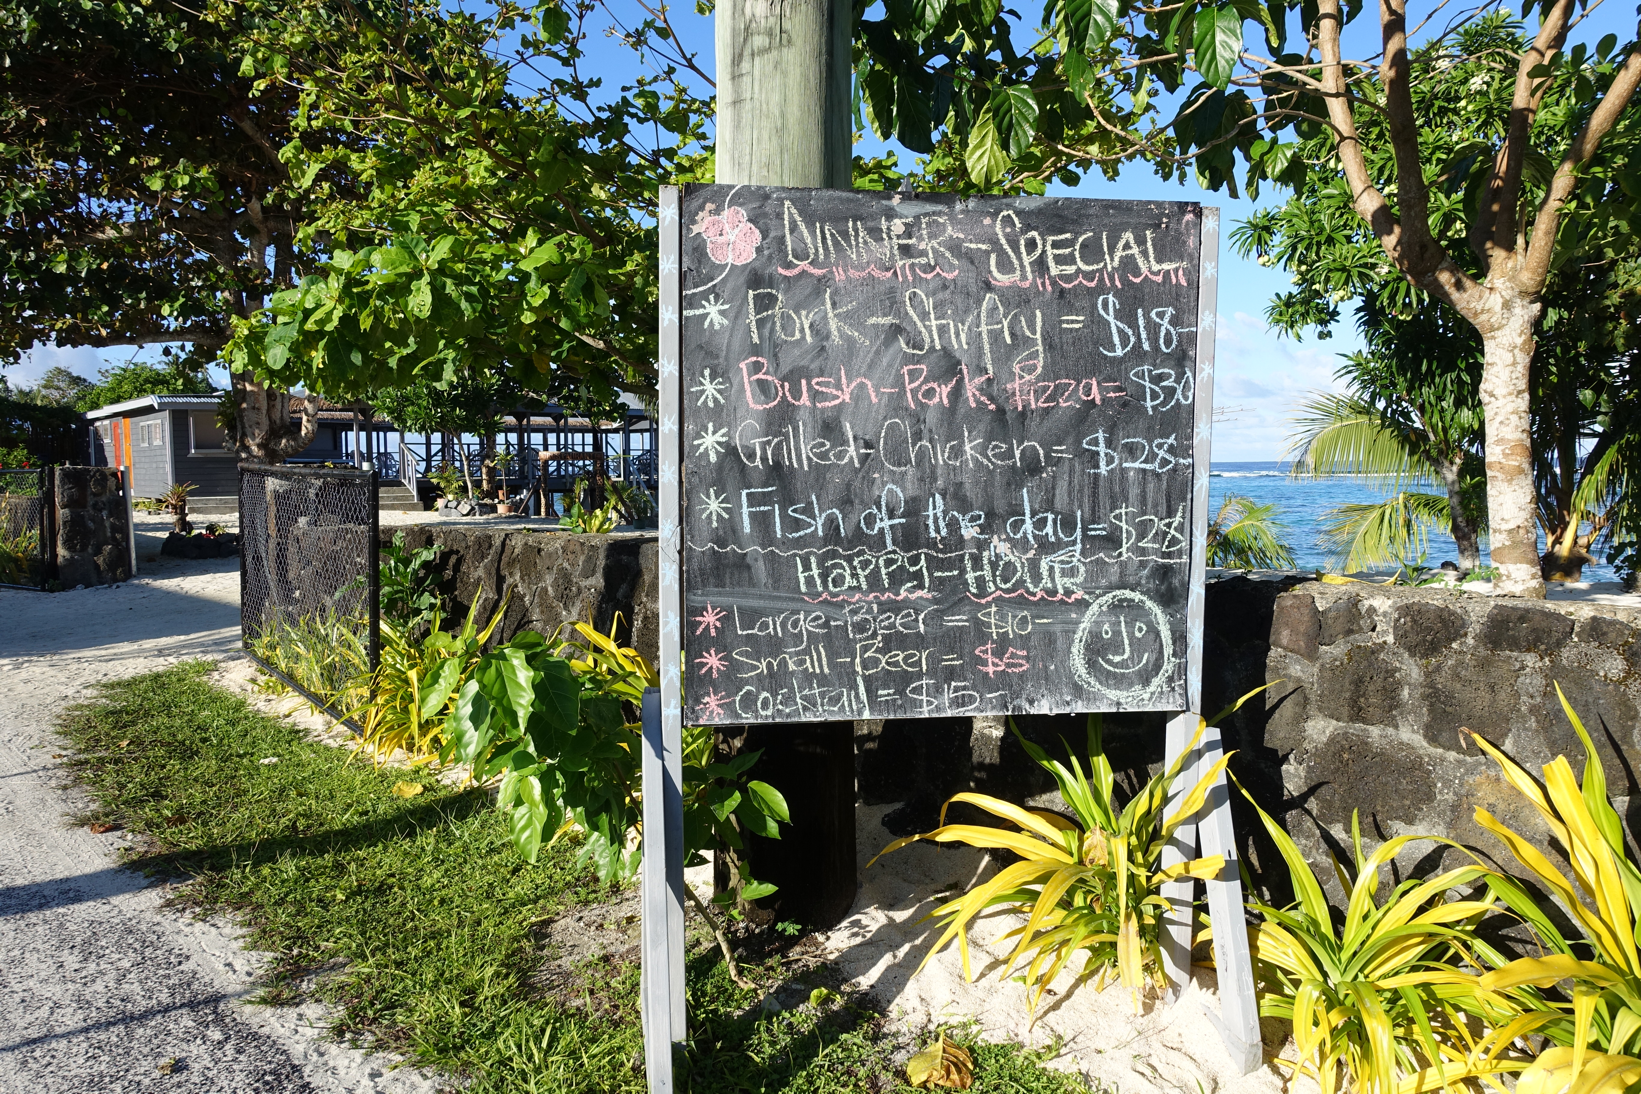 DINNER-SPECIAL
* Pork-Stirfry = $18-
* Bush-Pork Pizza= $30
* Grilled-Chicken= $28-
* Fish of the day= $28
HAPPY-HOUR
* Large-Beer = $10-
* Small-Beer = $5
* Cocktail = $15-